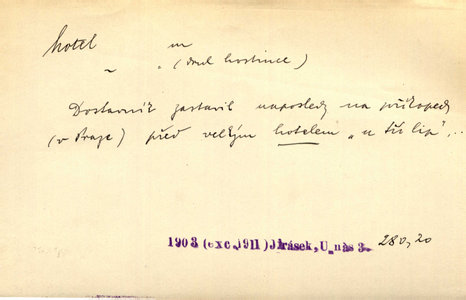 hotel m
„ „ (druh hostince)
Dostavník zastavil naposledy na příkopech
(v Praze) před velkým hotelem „u tří lip”...
1903 (exc. 1911) Jirásek, U nás 3. 280,20